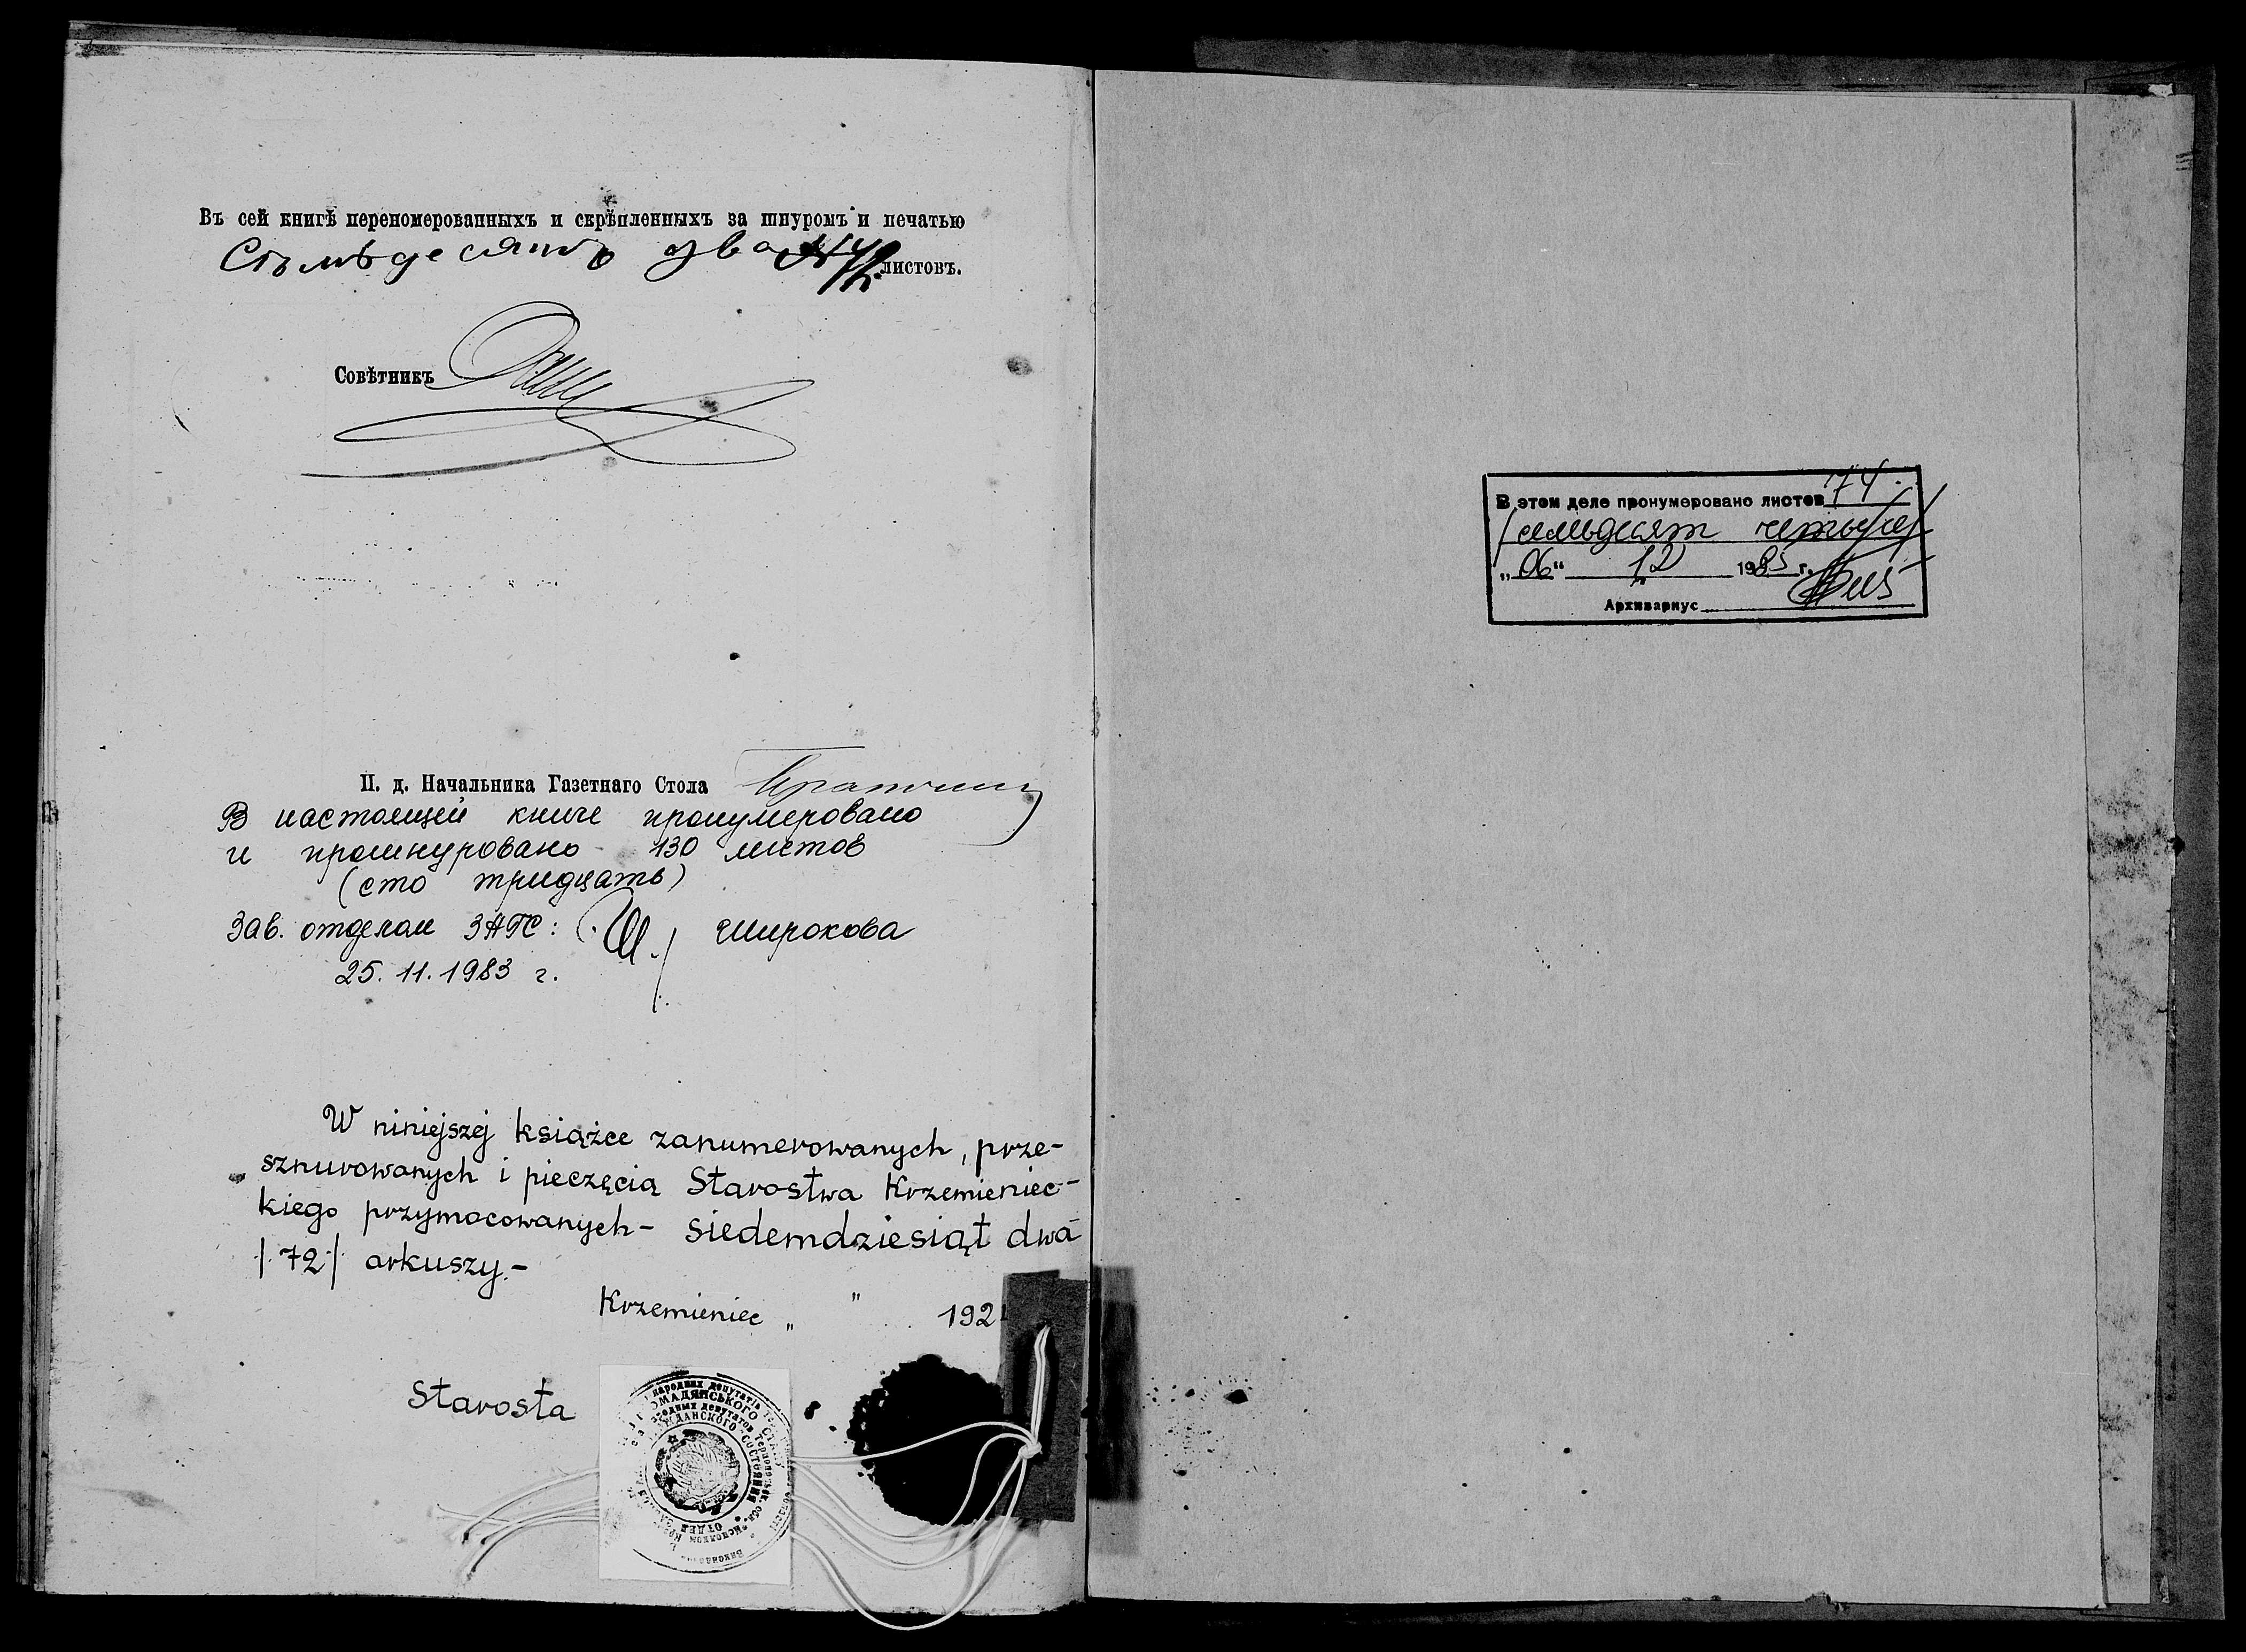 Въ сей книгѣ переномерованныхъ и скрѣпленныхъ за шнуромъ и печатью
Сѣмьдесятъ два листовъ.
Совѣтникъ
П. д. Начальника Газетнаго Стола
В настоящей книге пронумеровано
и прошнуровано 130 листов
(сто тридцать)
Зав. отделом ЗАГС: Широкова
25. 11. 1983 г.
W niniejszej książce zanumerowanych, prze-
sznurowanych i pieczęcią Starostwa Krzemieniec-
kiego przymocowanych - siedemdziesiąt dwa
/72/ arkuszy.-
Krzemieniec „ " 192
Starosta
народних депутатів
народных депутатов Тернопольск. обл.
ГРАЖДАНСКОГО СОСТОЯНИЯ
ОТДЕЛ
В этом деле пронумеровано листов 74.
/семьдесят четыре/
„06“ 12 1985 г.
Архивариус